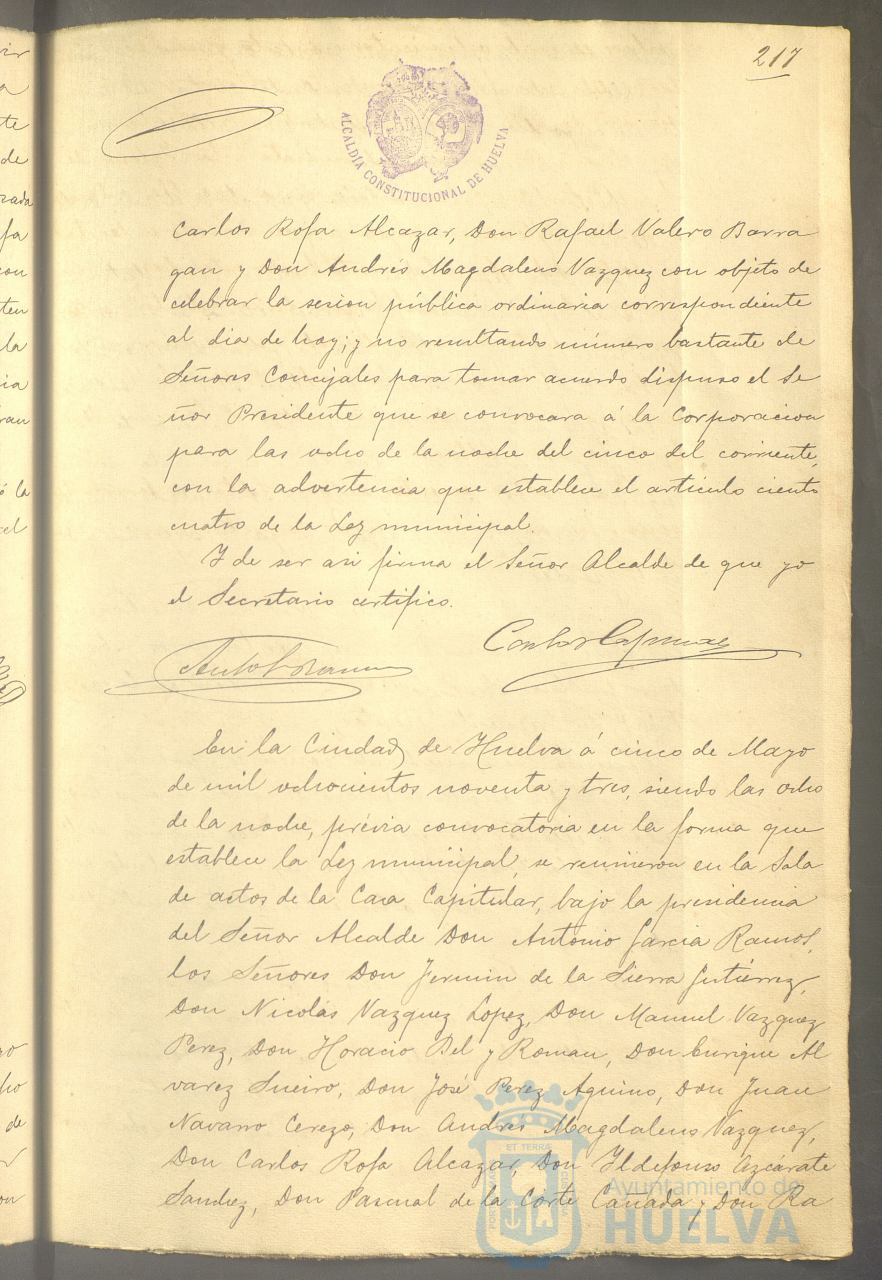 217
ALCALDÍA CONSTITUCIONAL DE HUELVA
Carlos Rofa Alcazar, Don Rafael Valero Barra
gan y Don Andrés Magdaleno Vazquez con objeto de
celebrar la sesion pública ordinaria correspondiente
al dia de hoy; y no resultando número bastante de
Señores Concejales para tomar acuerdo dispuso el Se
ñor Presidente que se convocara á la Corporacion
para las ocho de la noche del cinco del corriente,
con la advertencia que establece el articulo ciento
cuatro de la Ley municipal.
Y de ser asi firma el Señor Alcalde de que yo
el Secretario certifico.
En la Ciudad de Huelva á cinco de Mayo
de mil ochocientos noventa y tres, siendo las ocho
de la noche, prévia convocatoria en la forma que
establece la Ley municipal, se reunieron en la Sala
de actos de la Casa Capitular, bajo la presidencia
del Señor Alcalde Don Antonio Garcia Ramos,
los Señores Don Fermin de la Sierra Gutiérrez,
Don Nicolás Vazquez Lopez, Don Manuel Vazquez
Perez, Don Horacio Bel y Roman, Don Enrique Al
varez Sueiro, Don José Perez Aquino, Don Juan
Navarro Cerezo, Don Andres Magdaleno Vazquez,
Don Carlos Rofa Alcazar, Don Yldefonso Azcárate
Sanchez, Don Pascual de la Corte Cañada y Don Ra
Ayuntamiento de
HUELVA